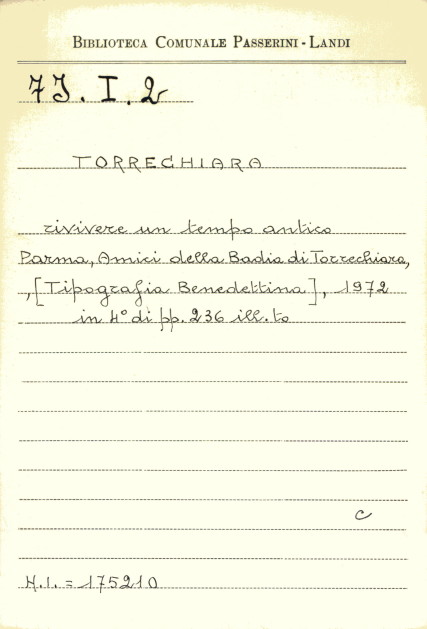 BIBLIOTECA COMUNALE PASSERINI - LANDI
7J. I. 2
TORRECHIARA
rivivere un tempo antico
Parma, Amici della Badia di Torrechiara,
, [Tipografia Benedettina], 1972
in 4° di pp. 236 ill.to
c
N.I. = 175210